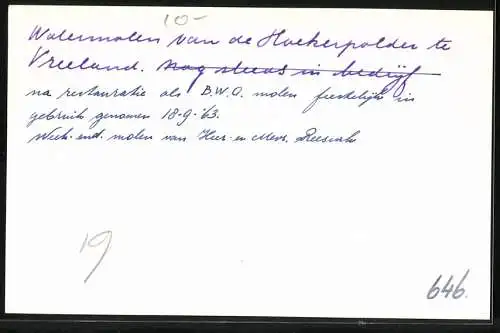 10-
Watermolen van de Hoekerpolder te
Vreeland. nog steeds in bedrijf
na restauratie als B.W.O. molen feestelijk in
gebruik genomen 18-9-'63.
Week-end molen van Heer en Mevr.
19
646.